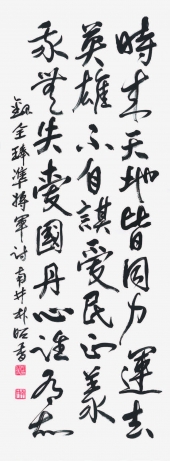 時来天地皆同力運去
英雄不自謀愛民正義
我無失愛國丹心誰有知
錄全琫準將軍詩南井朴昭香